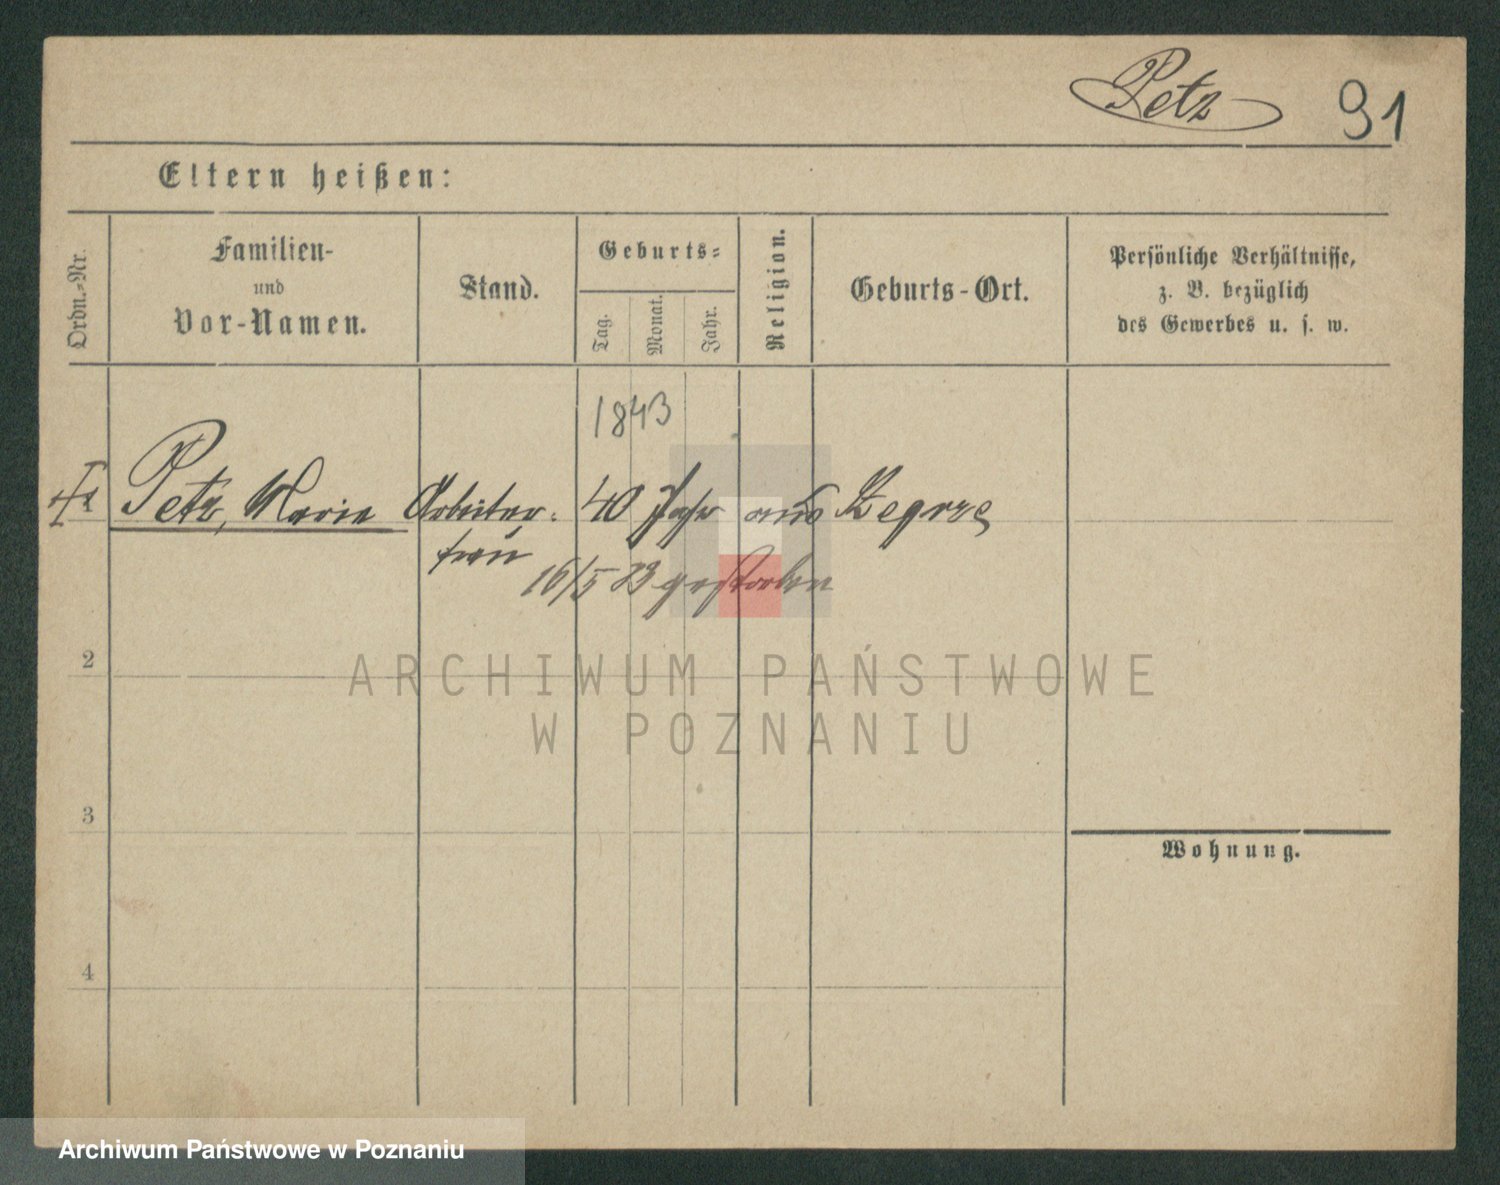 Petz 91
Eltern heißen:
Ordn.-Nr.
Familien-
und
Vor-Namen.
Stand.
Geburts-
Tag.
Monat.
Jahr.
Religion.
Geburts-Ort.
Persönliche Verhältnisse,
z. B. bezüglich
des Gewerbes u. s. w.
1843
Petz, Marie Arbeiter- 40 Jahr aus Zegrze
frau
16/5 83 gestorben
2
3
4
Wohnung.
ARCHIWUM PAŃSTWOWE
W POZNANIU
Archiwum Państwowe w Poznaniu